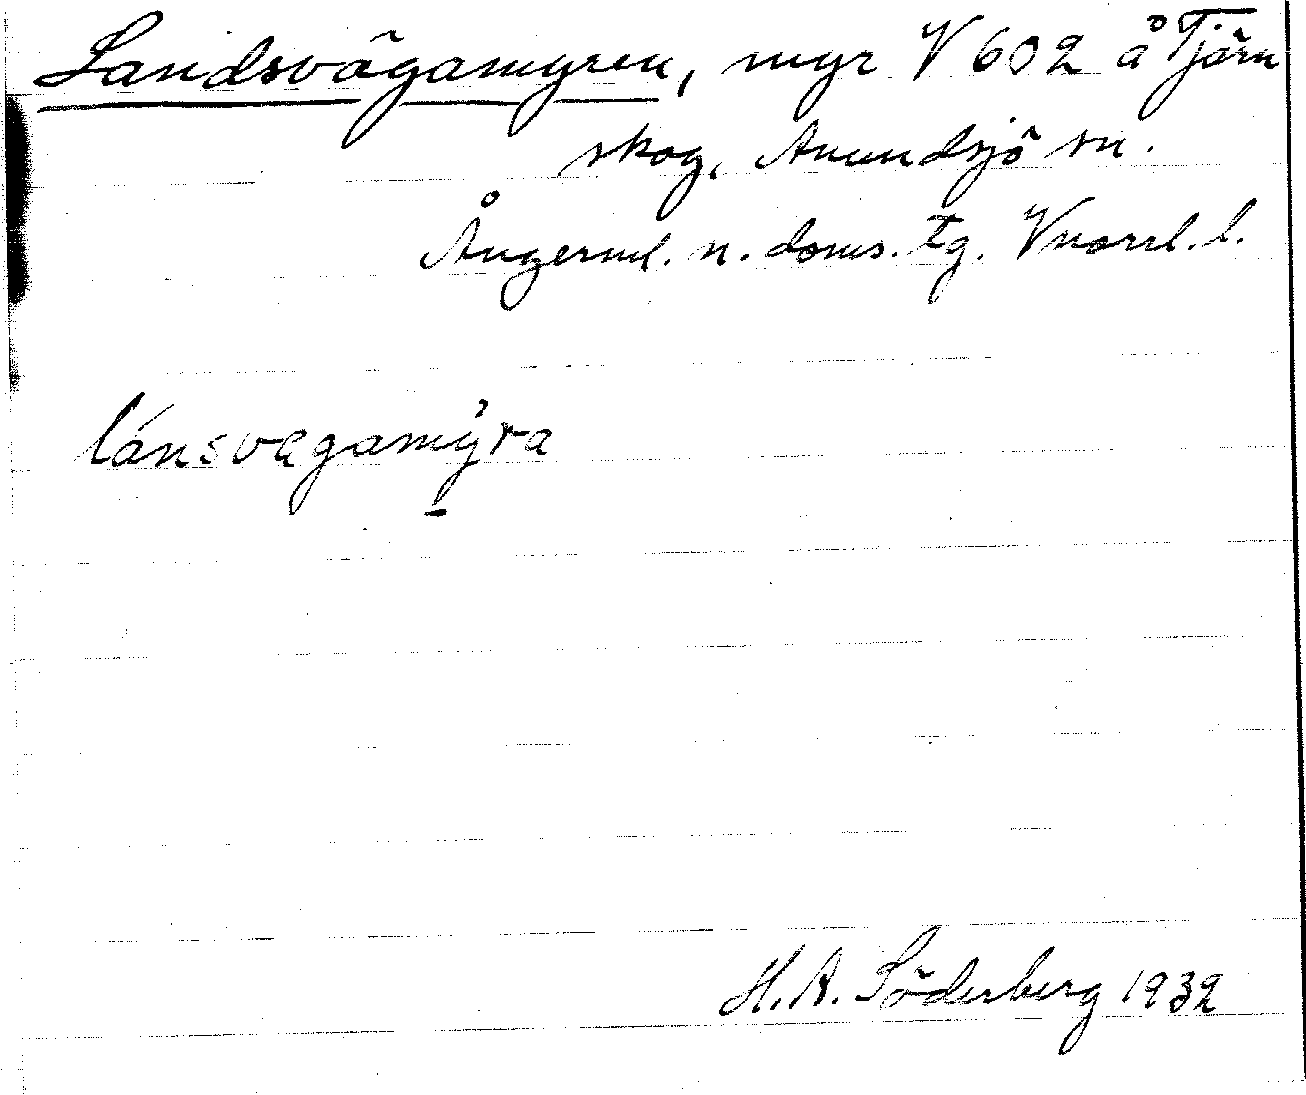 Landsvägamyren, myr V 602 å Tjärn
skog, Anundsjö sn.
Ångerml. n. doms. tg. Vnorrl. l.
lánsvęgamỳ̱ra
H. A. Söderberg 1932